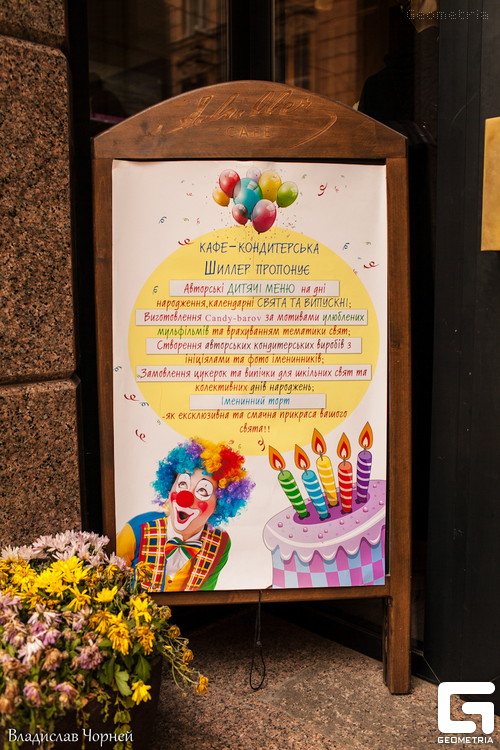 Geometria
Schiller
CAFE
КАФЕ-КОНДИТЕРСЬКА
ШИЛЛЕР ПРОПОНУЄ
Авторські ДИТЯЧІ МЕНЮ на дні
народження,календарні СВЯТА ТА ВИПУСКНІ;
Виготовлення Candy-barов за мотивами улюблених
мультфільмів та врахуванням тематики свят;
Створення авторських кондитерських виробів з
ініціялами та фото іменинників;
Замовлення цукерок та випічки для шкільних свят та
колективних днів народжень;
Іменинний торт
-як ексклюзивна та смачна прикраса вашого
свята!!
Владислав Чорней
GEOMETRIA